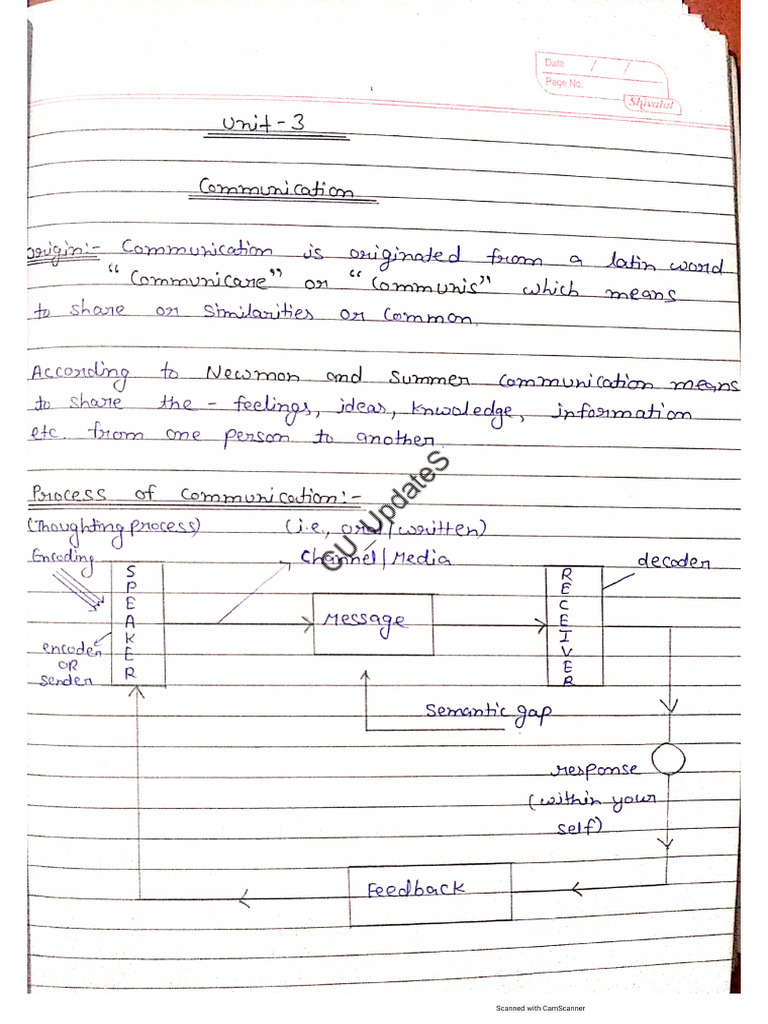 Date / /
Page No.
Shivalal
Unit-3
Communication
Origin:- Communication is originated from a latin word
"Communicare" or "Communis" which means
to share or similarities or common.
According to Newmon and Summer communication means
to share the - feelings, ideas, knwoledge, information
etc. from one person to another.
Process of Communication:-
(Thoughting process) (i.e, oral/written)
Encoding Channel/Media decoder
SPEAKER Message RECEIVER
encoder
OR
sender
Semantic gap
response
(within your
self)
Feedback
GU UpdateS
Scanned with CamScanner